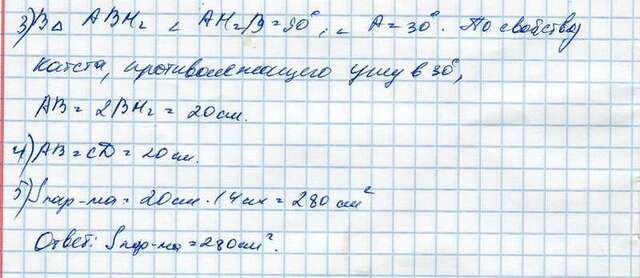 3) В △ ABH₂ ∠ AH₂B = 90°, ∠ A = 30°. По свойству
катета, противолежащего углу в 30°,
AB = 2BH₂ = 20 см.
4) AB = CD = 20 см.
5) S пар-ма = 20 см · 14 см = 280 см²
Ответ: S пар-ма = 280 см².